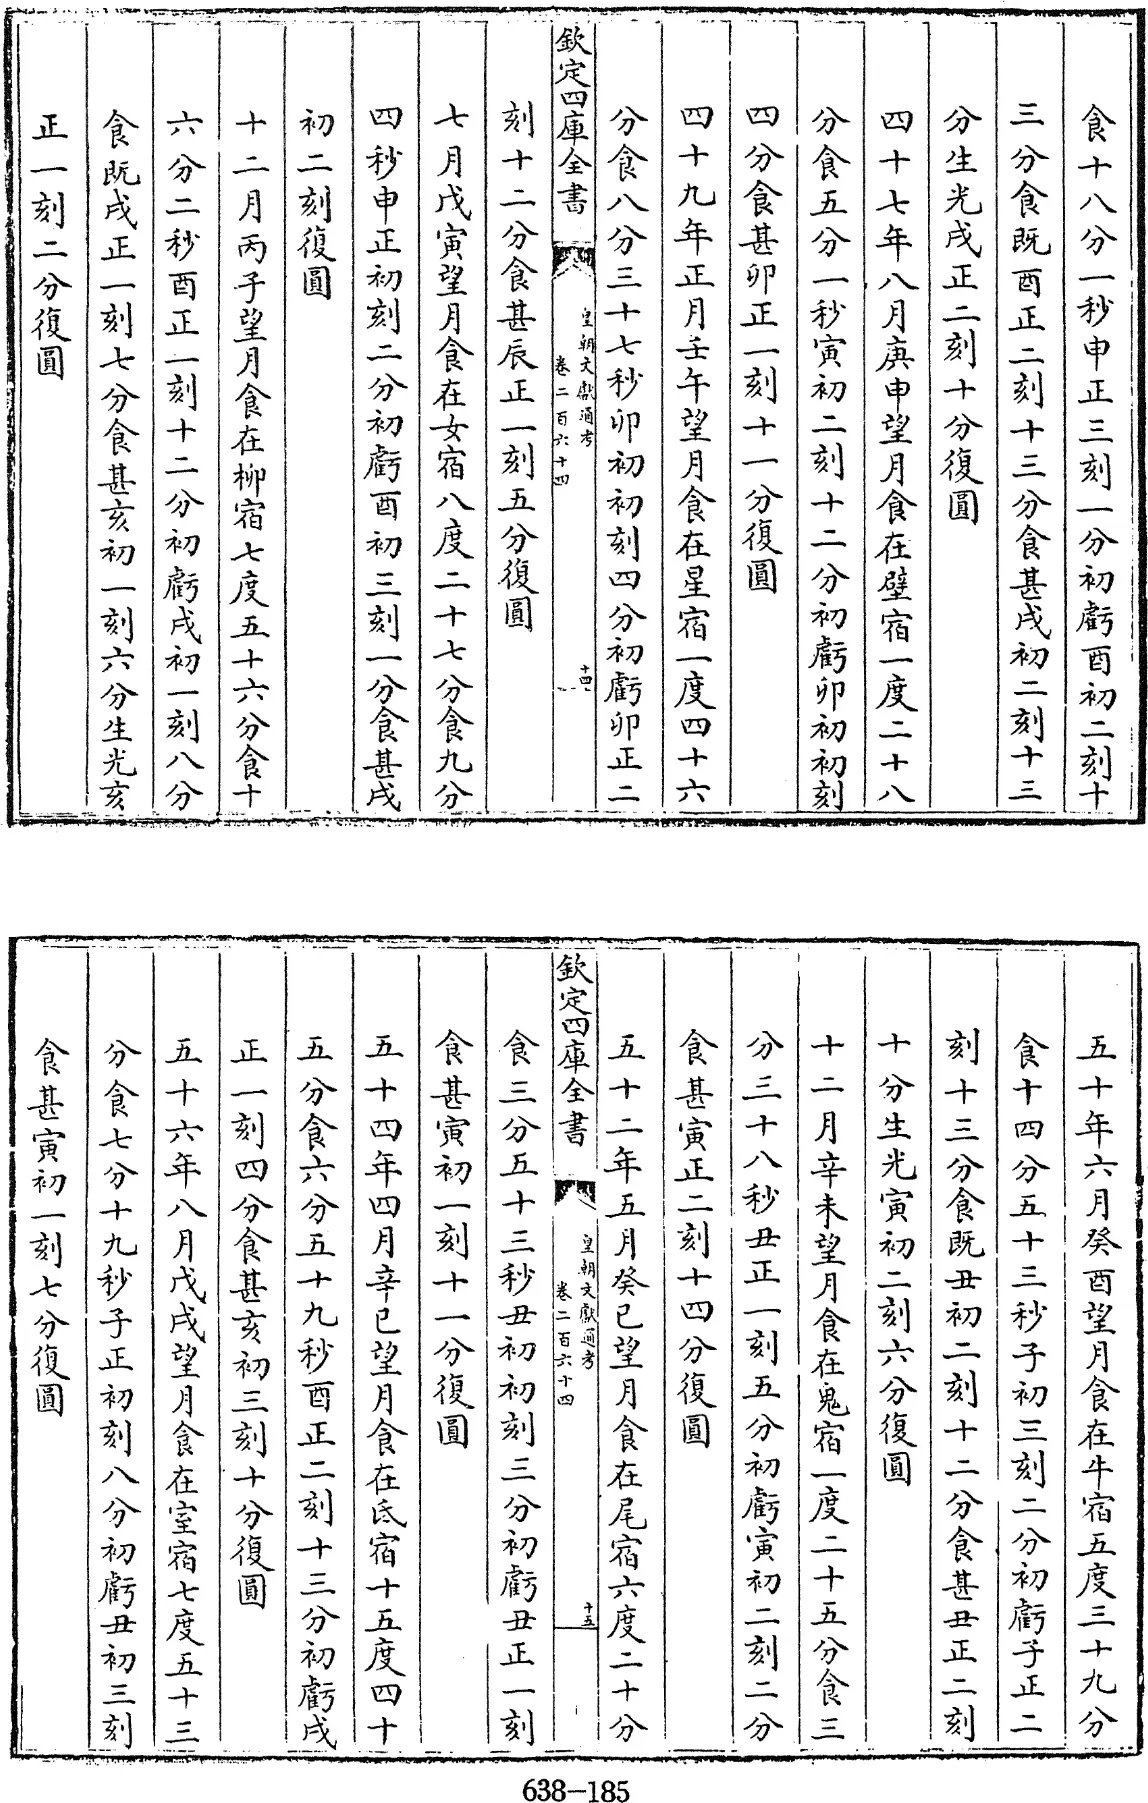 食十八分一秒申正三刻一分初虧酉初二刻十
三分食既酉正二刻十三分食甚戌初二刻十三
分生光戌正二刻十分復圓
四十七年八月庚申望月食在壁宿一度二十八
分食五分一秒寅初二刻十二分初虧卯初初刻
四分食甚卯正一刻十一分復圓
四十九年正月壬午望月食在星宿一度四十六
分食八分三十七秒卯初初刻四分初虧卯正二
欽定四庫全書
皇朝文獻通考
卷二百六十四
十四
刻十二分食甚辰正一刻五分復圓
七月戊寅望月食在女宿八度二十七分食九分
四秒申正初刻二分初虧酉初三刻一分食甚戌
初二刻復圓
十二月丙子望月食在柳宿七度五十六分食十
六分二秒酉正一刻十二分初虧戌初一刻八分
食既戌正一刻七分食甚亥初一刻六分生光亥
正一刻二分復圓
五十年六月癸酉望月食在牛宿五度三十九分
食十四分五十三秒子初三刻二分初虧子正二
刻十三分食既丑初二刻十二分食甚丑正二刻
十分生光寅初二刻六分復圓
十二月辛未望月食在鬼宿一度二十五分食三
分三十八秒丑正一刻五分初虧寅初二刻二分
食甚寅正二刻十四分復圓
五十二年五月癸巳望月食在尾宿六度二十分
欽定四庫全書
皇朝文獻通考
卷二百六十四
十五
食三分五十三秒丑初初刻三分初虧丑正一刻
食甚寅初一刻十一分復圓
五十四年四月辛巳望月食在氐宿十五度四十
五分食六分五十九秒酉正二刻十三分初虧戌
正一刻四分食甚亥初三刻十分復圓
五十六年八月戊戌望月食在室宿七度五十三
分食七分十九秒子正初刻八分初虧丑初三刻
食甚寅初一刻七分復圓
638-185